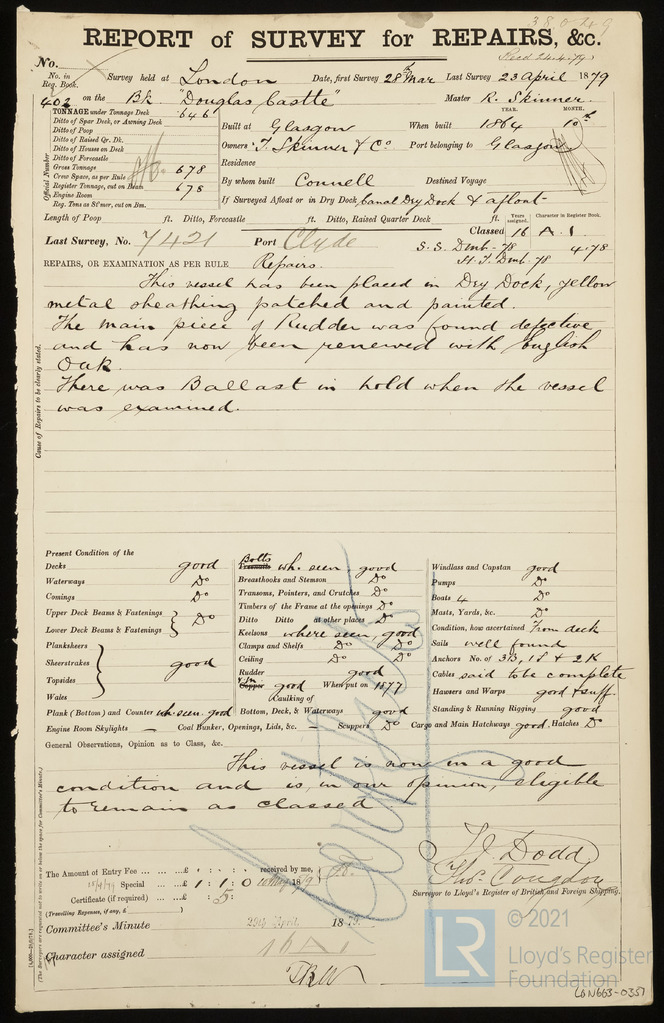 38049
REPORT of SURVEY for REPAIRS, &c.
Recd 24.4.79
No.
No. in Reg. Book. Survey held at London Date, first Survey 28th Mar Last Survey 23 April 1879
402 on the Bk "Douglas Castle" Master R. Skinner
TONNAGE under Tonnage Deck 646
Ditto of Spar Deck, or Awning Deck
Ditto of Poop
Ditto of Raised Qr. Dk.
Ditto of Houses on Deck
Ditto of Forecastle
Gross Tonnage 678
Crew Space, as per Rule
Register Tonnage, cut on Beam 678
Engine Room
Reg. Tons as Str., cut on Bm.
Official Number
YEAR. MONTH.
Built at Glasgow When built 1864 10th
Owners T. Skinner & Co Port belonging to Glasgow
Residence
By whom built Connell Destined Voyage
If Surveyed Afloat or in Dry Dock Canal Dry Dock & afloat
Length of Poop ft. Ditto, Forecastle ft. Ditto, Raised Quarter Deck ft.
Years assigned. Character in Register Book.
Classed 16 A.1
Last Survey, No. 7421 Port Clyde S.S. Dmb-78 4-78
H.T. Dmb-78
REPAIRS, OR EXAMINATION AS PER RULE Repairs.
This vessel has been placed in Dry Dock, yellow
metal sheathing patched and painted.
The main piece of Rudder was found defective
and has now been renewed with English
Oak.
There was Ballast in hold when the vessel
was examined.
Cause of Repairs to be clearly stated.
Present Condition of the
Decks good
Waterways Do
Comings Do
Upper Deck Beams & Fastenings
Lower Deck Beams & Fastenings } Do
Planksheers
Sheerstrakes
Topsides
Wales } good
Plank (Bottom) and Counter wh. seen good
Engine Room Skylights —
Bolts wh. seen, good
Breasthooks and Stemson Do
Transoms, Pointers, and Crutches Do
Timbers of the Frame at the openings Do
Ditto Ditto at other places Do
Keelsons where seen, good
Clamps and Shelfs Do Do
Ceiling Do Do
Rudder good
Y.M. Copper good When put on 1877
Caulking of
Bottom, Deck, & Waterways good
Coal Bunker, Openings, Lids, &c. — Scuppers Do
Windlass and Capstan good
Pumps Do
Boats 4 Do
Masts, Yards, &c. Do
Condition, how ascertained From deck
Sails well found
Anchors No. of 3B, 1S & 2K
Cables said to be complete
Hawsers and Warps good & suff.
Standing & Running Rigging good
Cargo and Main Hatchways good, Hatches Do
General Observations, Opinion as to Class, &c.
This vessel is now in a good
condition and is, in our opinion, eligible
to remain as classed
T. J. Dodd
Thos. Congdon
Surveyor to Lloyd's Register of British and Foreign Shipping.
The Amount of Entry Fee ... ... £ : : received by me,
Special ... ... £ 1 : 1 : 0
Certificate (if required) ... £ : 5 :
(Travelling Expenses, if any, £ )
Committee's Minute 29th April 1879.
Character assigned 16 A1
© 2021
LR
Lloyd's Register
Foundation
LON663-0351